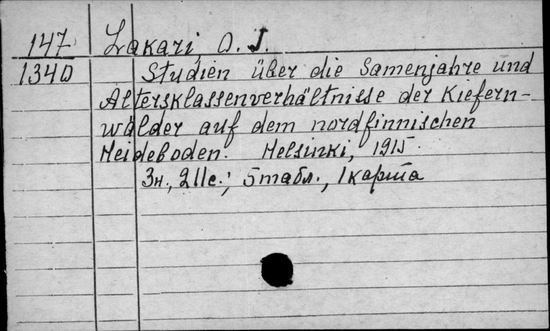 147 Lakari, O. J.
1340 Studien über die Samenjahre und
Altersklassenverhältnisse der Kiefern-
wälder auf dem nordfinnischen
Heideboden. Helsinki, 1915.
5 табл., 1 карта